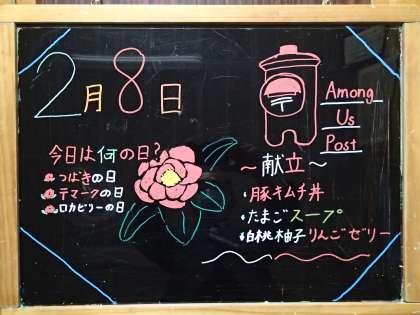 2月8日
今日は何の日?
つばきの日
テマークの日
ロカビリーの日
〒
Among
Us
Post
～献立～
・豚キムチ丼
・たまごスープ
・白桃柚子りんごゼリー